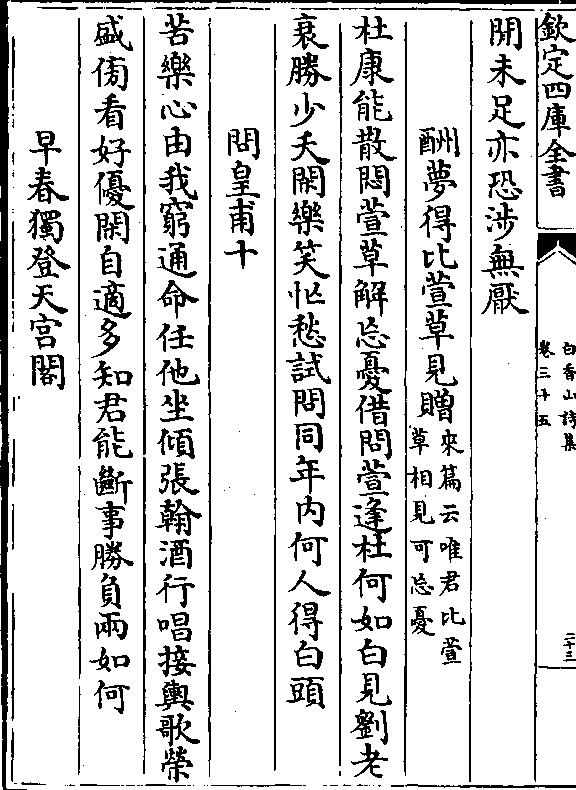 欽定四庫全書
白香山詩集
卷三十五
二十三
開未足亦恐涉無厭
酬夢得比萱草見贈來篇云唯君比萱草相見可忘憂
杜康能散悶萱草解忘憂借問萱逢杜何如白見劉老
衰勝少夭閑樂笑忙愁試問同年内何人得白頭
問皇甫十
苦樂心由我窮通命任他坐傾張翰酒行唱接輿歌榮
盛傍看好優閑自適多知君能斷事勝負兩如何
早春獨登天宫閣